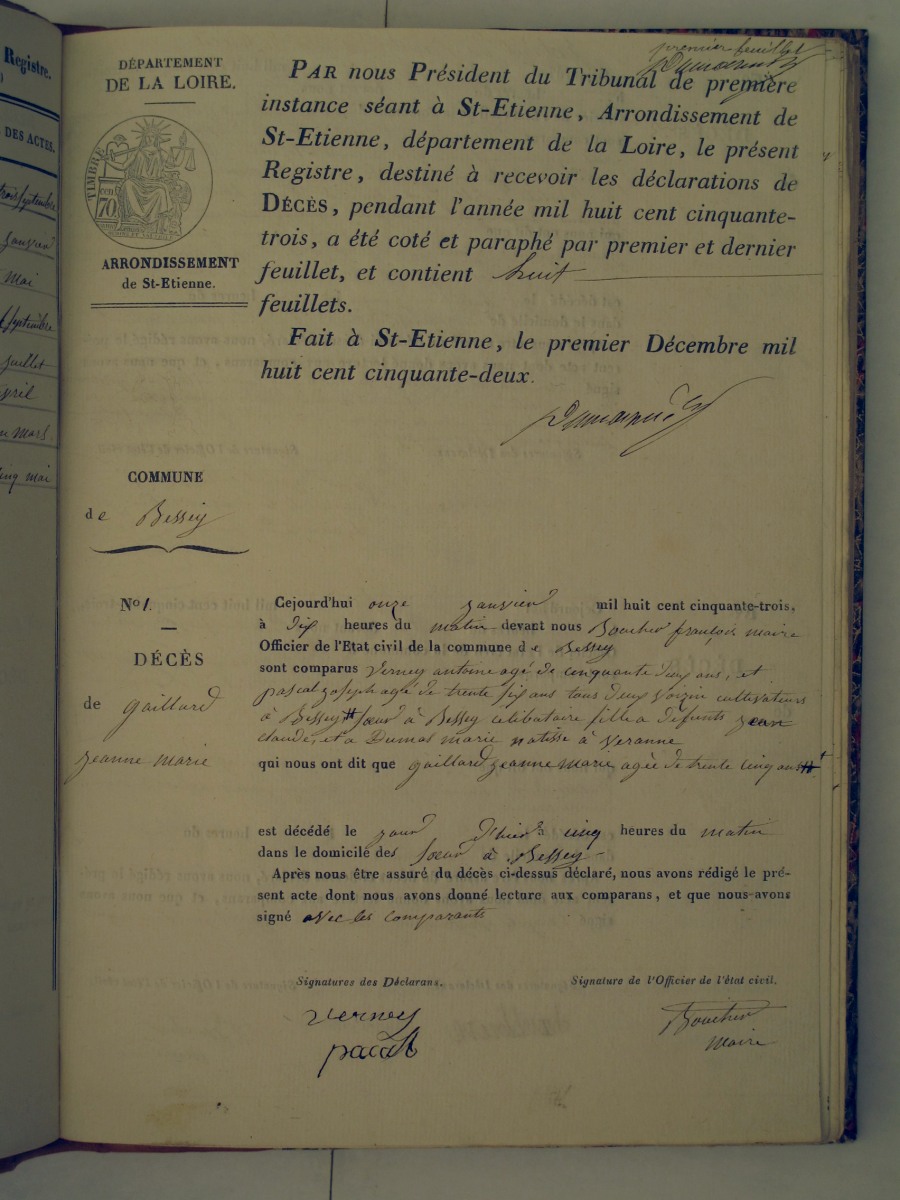 Registre.
DES ACTES.
trois septembre
janvier
mai
septembre
juillet
avril
mars.
cinq mai
premier feuillet
DÉPARTEMENT
DE LA LOIRE.
TIMBRE
cen
70
ARRONDISSEMENT
de St-Etienne.
PAR nous Président du Tribunal de première
instance séant à St-Etienne, Arrondissement de
St-Etienne, département de la Loire, le présent
Registre, destiné à recevoir les déclarations de
DÉCÈS, pendant l'année mil huit cent cinquante-
trois, a été coté et paraphé par premier et dernier
feuillet, et contient huit
feuillets.
Fait à St-Etienne, le premier Décembre mil
huit cent cinquante-deux.
COMMUNE
de Bessey
No 1.
DÉCÈS
de gaillard
jeanne marie
Cejourd'hui onze janvier mil huit cent cinquante-trois,
à dix heures du matin devant nous Boucher françois maire
Officier de l'Etat civil de la commune de Bessey
sont comparus verney antoine agé de cinquante deux ans, et
pascal joseph agé de trente six ans tous deux voizin cultivateurs
à Bessey # sœur à Bessey celibataire fille a defunts jean
claude, et a Dumas marie natisse à veranne
qui nous ont dit que gaillard jeanne marie agée de trente cinq ans #
est décédé le jour d'hier à cinq heures du matin
dans le domicile des sœur à Bessey
Après nous être assuré du décès ci-dessus déclaré, nous avons rédigé le pré-
sent acte dont nous avons donné lecture aux comparans, et que nous avons
signé avec les comparants
Signatures des Déclarans.
Signature de l'Officier de l'état civil.
verney
pacal
Boucher
maire